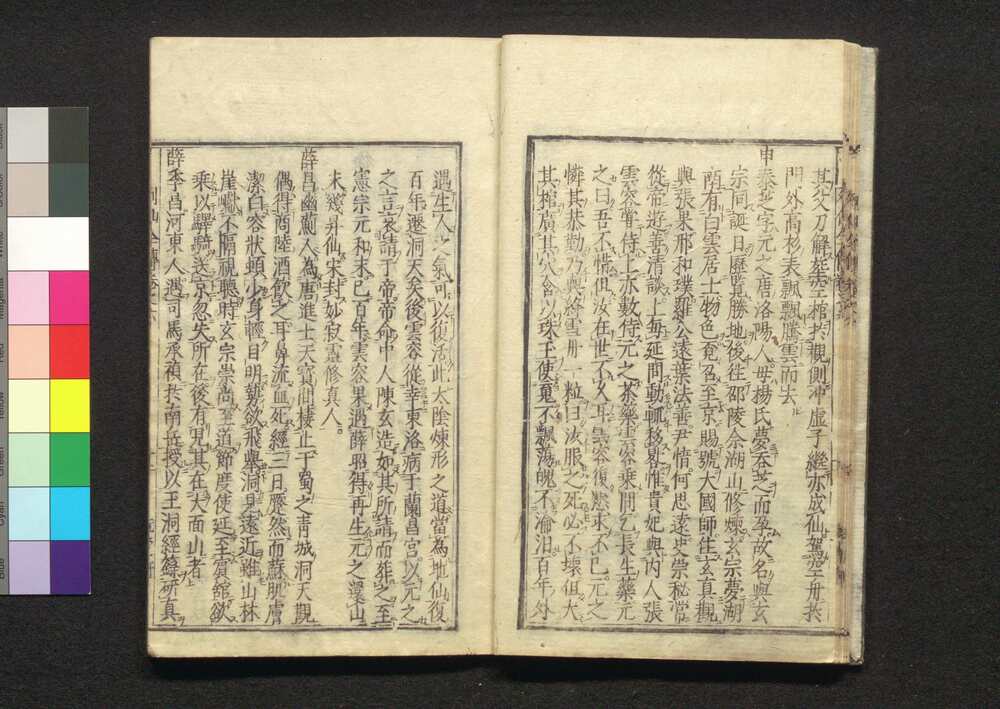 其父刀解塟空棺扵觀側沖虛子繼亦成仙駕空舟扵
門外高杉表飄飄騰雲而去
申泰芝字元之唐洛陽人母楊氏夢吞芝而孕故名與玄
宗同誕日歷覽勝地後往邵陵余湖山修煉玄宗夢湖
南有白雲居士物色竟召至京賜號大國師住玄真觀
與張果邢和璞羅公遠葉法善尹愔何思遠史崇秘常
從帝遊善清談上每延問動輒移晷惟貴妃與内人張
雲容嘗侍上亦數侍元之茶藥雲容乗間乞長生藥元
之曰吾不惜但汝在世不久耳雲容復懇求不已元之
憐其恭勤乃與絳雪丹一粒曰汝服之死必不壊但大
其棺廣其穴含以珠玉使䰟不飄蕩魄不淪汩百年外
遇生人之氣可以復活此太陰煉形之道當為地仙復
百年遷洞天矣後雲容從幸東洛病于蘭昌宮以元之
之言哀請于帝帝命中人陳玄造如其所請而葬之至
憲宗元和末已百年雲容果遇薛昭得再生元之還山
未幾昇仙宋封妙寂靈修真人
薛昌幽薊人為唐進士天寶間棲止于蜀之青城洞天觀
偶得商陸酒飲之耳鼻流血死經二日歷然而蘇肌膚
潔白容狀頓少身輕目明勢欲飛舉洞見遠近雖山林
崖巘不隔視聽時玄宗崇尚至道節度使延至賓舘欲
乗以驛騎送京忽失所在後有見其在大面山者
薛季昌河東人遇司馬承禎扵南岳授以玉洞經籙研真